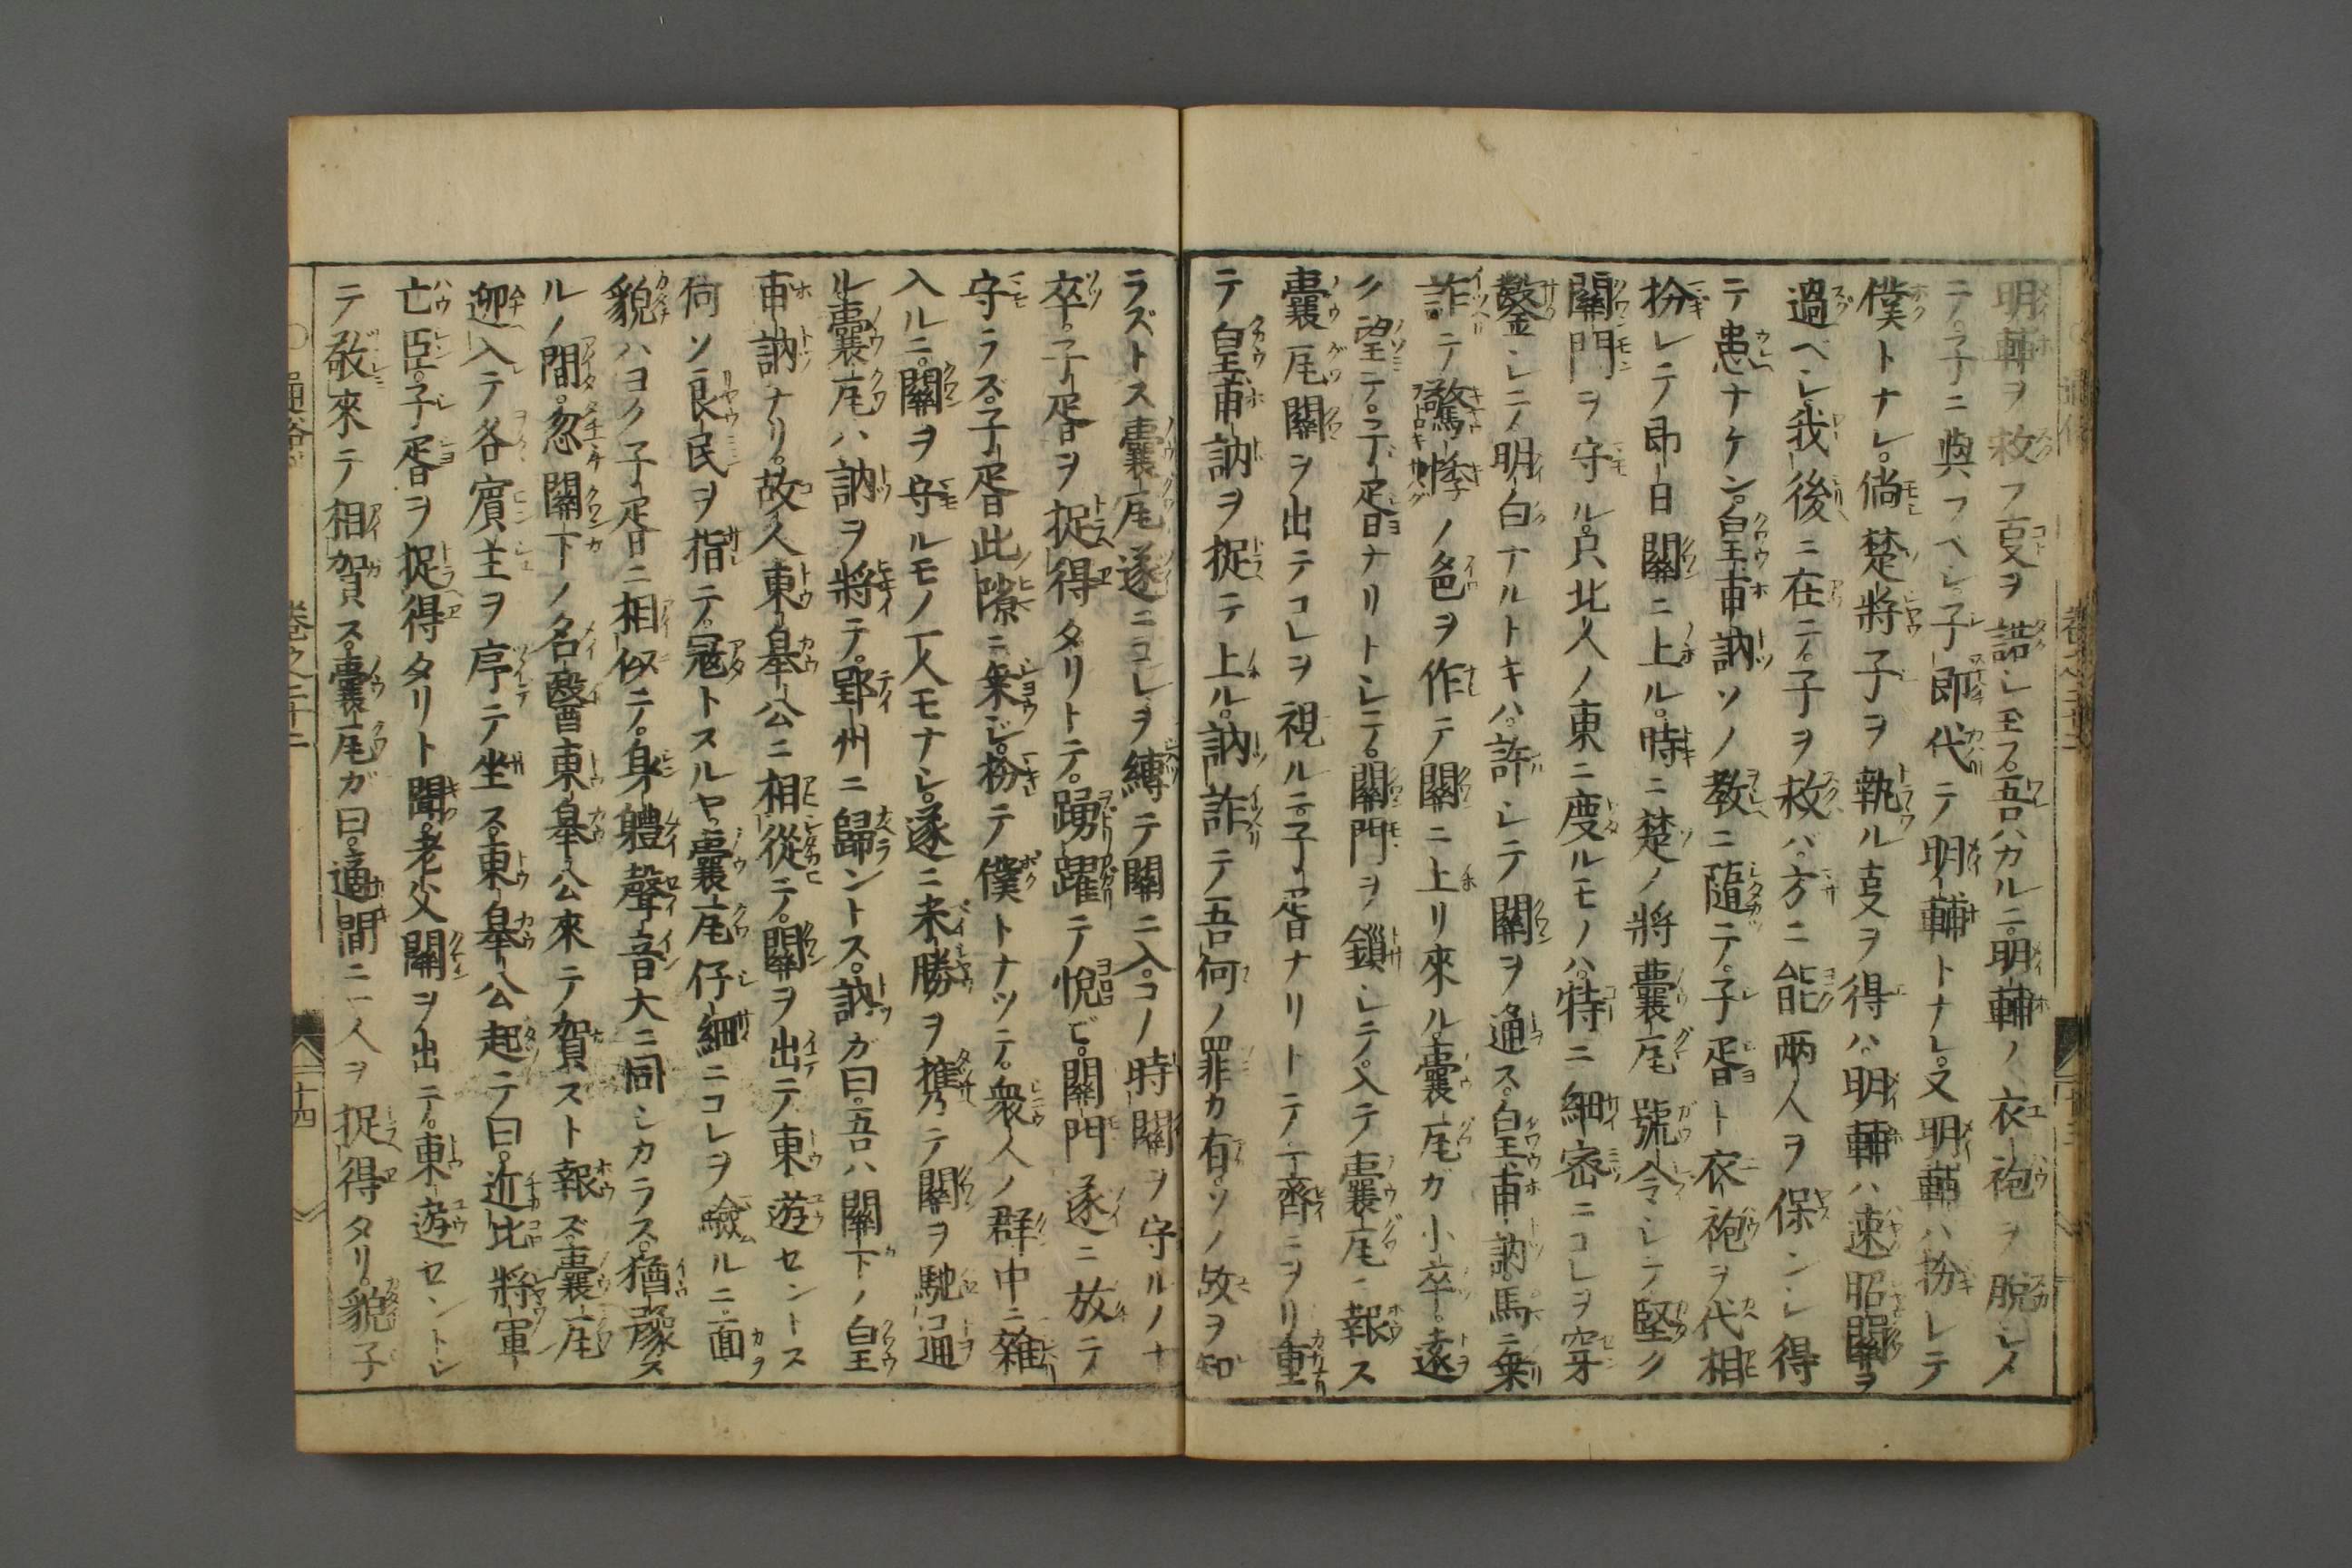 明輔ヲ救フ叓ヲ諾シ至フ吾ハカルニ明輔ノ衣袍ヲ脱シメ
テ子ニ與フヘレ子即代テ明輔トナレ又明輔ハ扮レテ
僕トナレ倘楚將子ヲ執ル叓ヲ得ハ明輔ハ速昭關ヲ
過ベレ我後ニ在テ子ヲ救バ方ニ能兩人ヲ保ンレ得
テ患ナケン皇甫訥ソノ教ニ隨テ子胥ト衣袍ヲ代相
扮レテ即日關ニ上ル時ニ楚ノ將囊瓦號令シテ堅ク
關門ヲ守ル只北人ノ東ニ度ルモノハ特ニ細宻ニコレヲ穿
鑿シニノ明白ナルトキハ許シテ關ヲ通ス皇甫訥馬ニ乗
詐テ驚悸ノ色ヲ作テ關ニ上リ來ル囊瓦ガ小卒遠
ク望テ子胥ナリトシテ關門ヲ鎖シテ入テ囊瓦ニ報ス
囊瓦關ヲ出テコレヲ視ルニ子胥ナリトテ一齊ニヲリ重
テ皇甫訥ヲ捉テ上ル訥詐テ吾何ノ罪カ有ソノ故ヲ知
ラズトス囊瓦遂ニコレヲ縛テ關ニ入コノ時關ヲ守ルノナ
卒子胥ヲ捉得タリトテ踴躍テ悅ビ關門遂ニ放テ
守ラズ子胥此隙ニ乗ジ扮テ僕トナツテ衆人ノ群中ニ雜
入ルニ關ヲ守ルモノ一人モナシ遂ニ米勝ヲ携テ關ヲ馳通
ル囊瓦ハ訥ヲ將テ郢州ニ歸ントス訥ガ曰吾ハ關下ノ皇
甫訥ナリ故人東皐公ニ相從テ關ヲ出テ東遊セントス
何ソ良民ヲ指テ冦トスルヤ囊瓦仔細ニコレヲ驗ルニ面
貌ハヨク子胥ニ相似テ身體聲音大ニ同シカラス猶豫ス
ルノ間忽關下ノ名醫東皐公來テ賀スト報ズ囊瓦
迎入テ各賓主ヲ序テ坐ス東皐公起テ曰近比將軍
亡臣子胥ヲ捉得タリト聞老父關ヲ出テ東遊セントシ
テ敬來テ相賀ス囊瓦ガ曰適間ニ一人ヲ捉得タリ貌子
卷之二十二
二十四